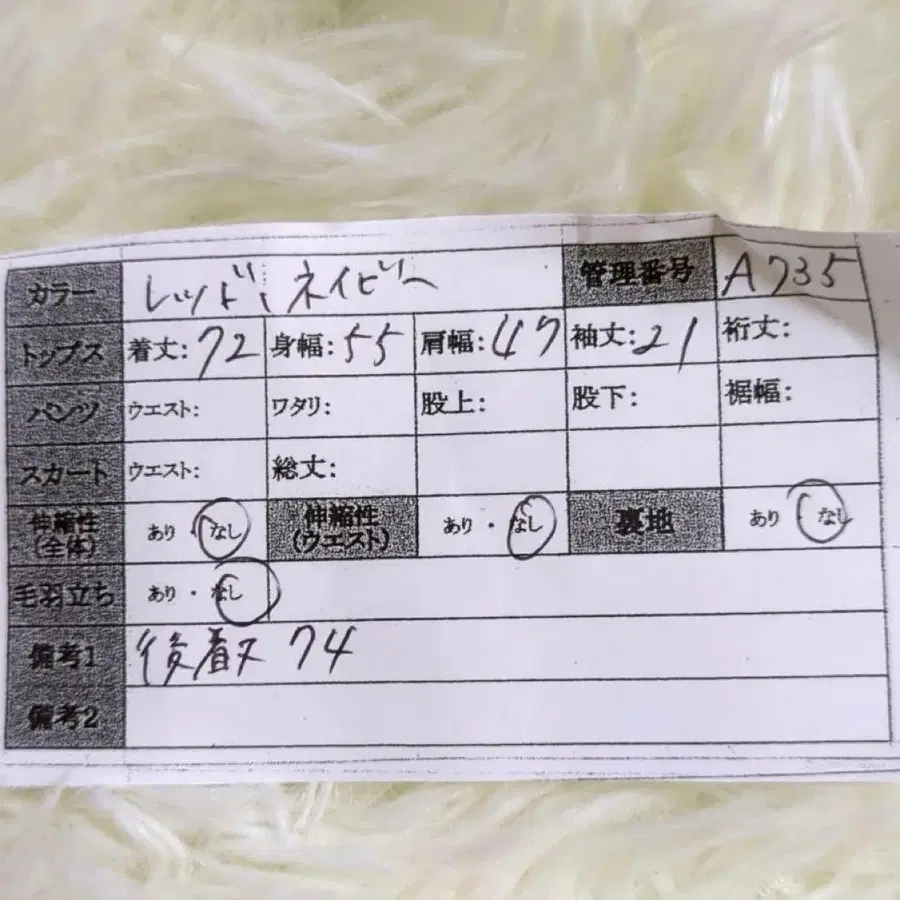 カラー レッド、ネイビー 管理番号 A735
トップス 着丈:72 身幅:55 肩幅:47 袖丈:21 裄丈:
パンツ ウエスト: ワタリ: 股上: 股下: 裾幅:
スカート ウエスト: 総丈:
伸縮性(全体) あり・なし 伸縮性(ウエスト) あり・なし 裏地 あり なし
毛羽立ち あり・なし
備考1 後着丈 74
備考2